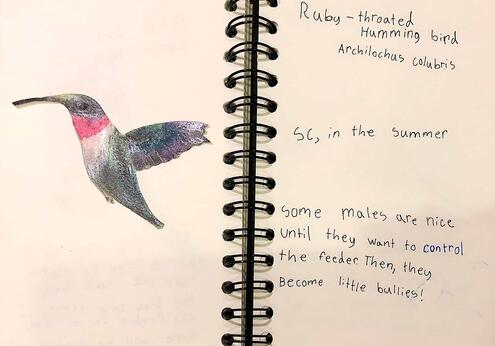 Ruby-throated
Humming bird
Archilochus colubris
SC, in the summer
Some males are nice
until they want to control
the feeder Then, they
Become little bullies!